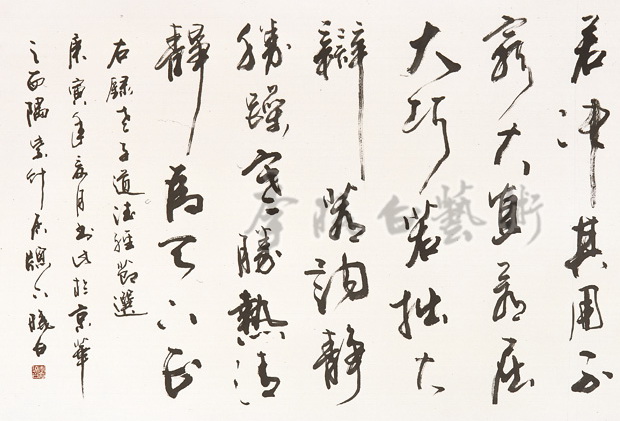 若冲其用不
窮大直若屈
大巧若拙大
辯若訥静
勝躁寒勝熱清
静為天下正
右録老子道德經節選
庚寅年月書於京華
之西隅紫竹居牖下曉白
白藝術